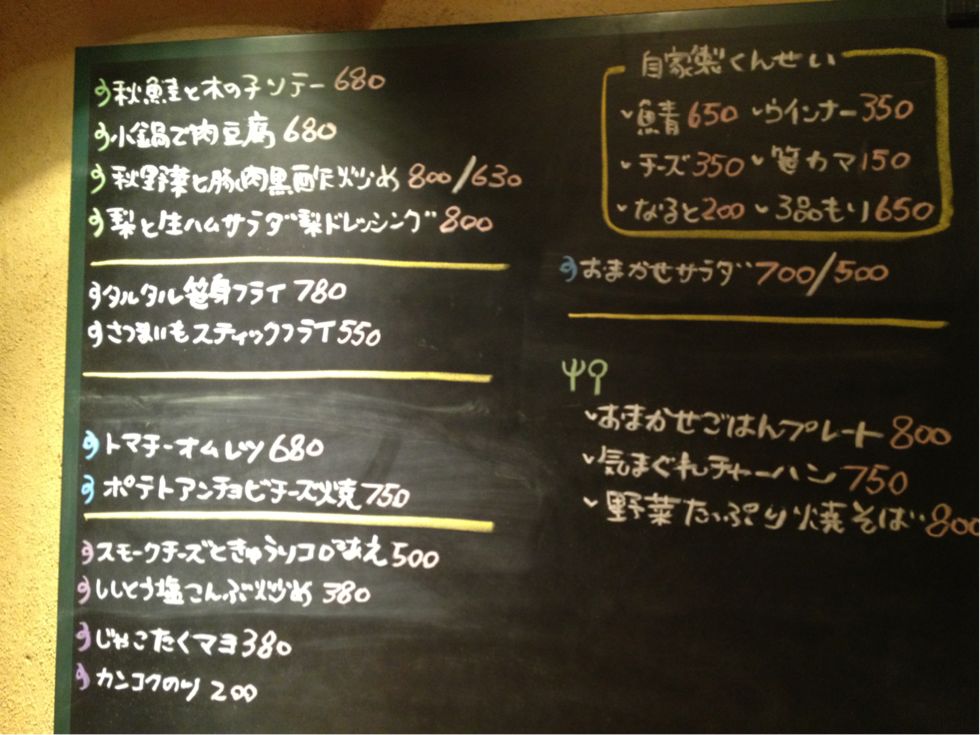 秋鮭と木の子ソテー 680
小鍋で肉豆腐 680
秋野菜と豚肉黒酢炒め 800/630
梨と生ハムサラダ 梨ドレッシング 800
タルタル笹身フライ 780
さつまいもスティックフライ 550
トマチーオムレツ 680
ポテトアンチョビチーズ焼 750
スモークチーズときゅうりコロコロあえ 500
ししとう塩こんぶ炒め 380
じゃこたくマヨ 380
カンコクのり 200
自家製くんせい
鯖 650 ウインナー 350
チーズ 350 笹カマ 150
なると 200 3品もり 650
おまかせサラダ 700/500
おまかせごはんプレート 800
気まぐれチャーハン 750
野菜たっぷり焼そば 800